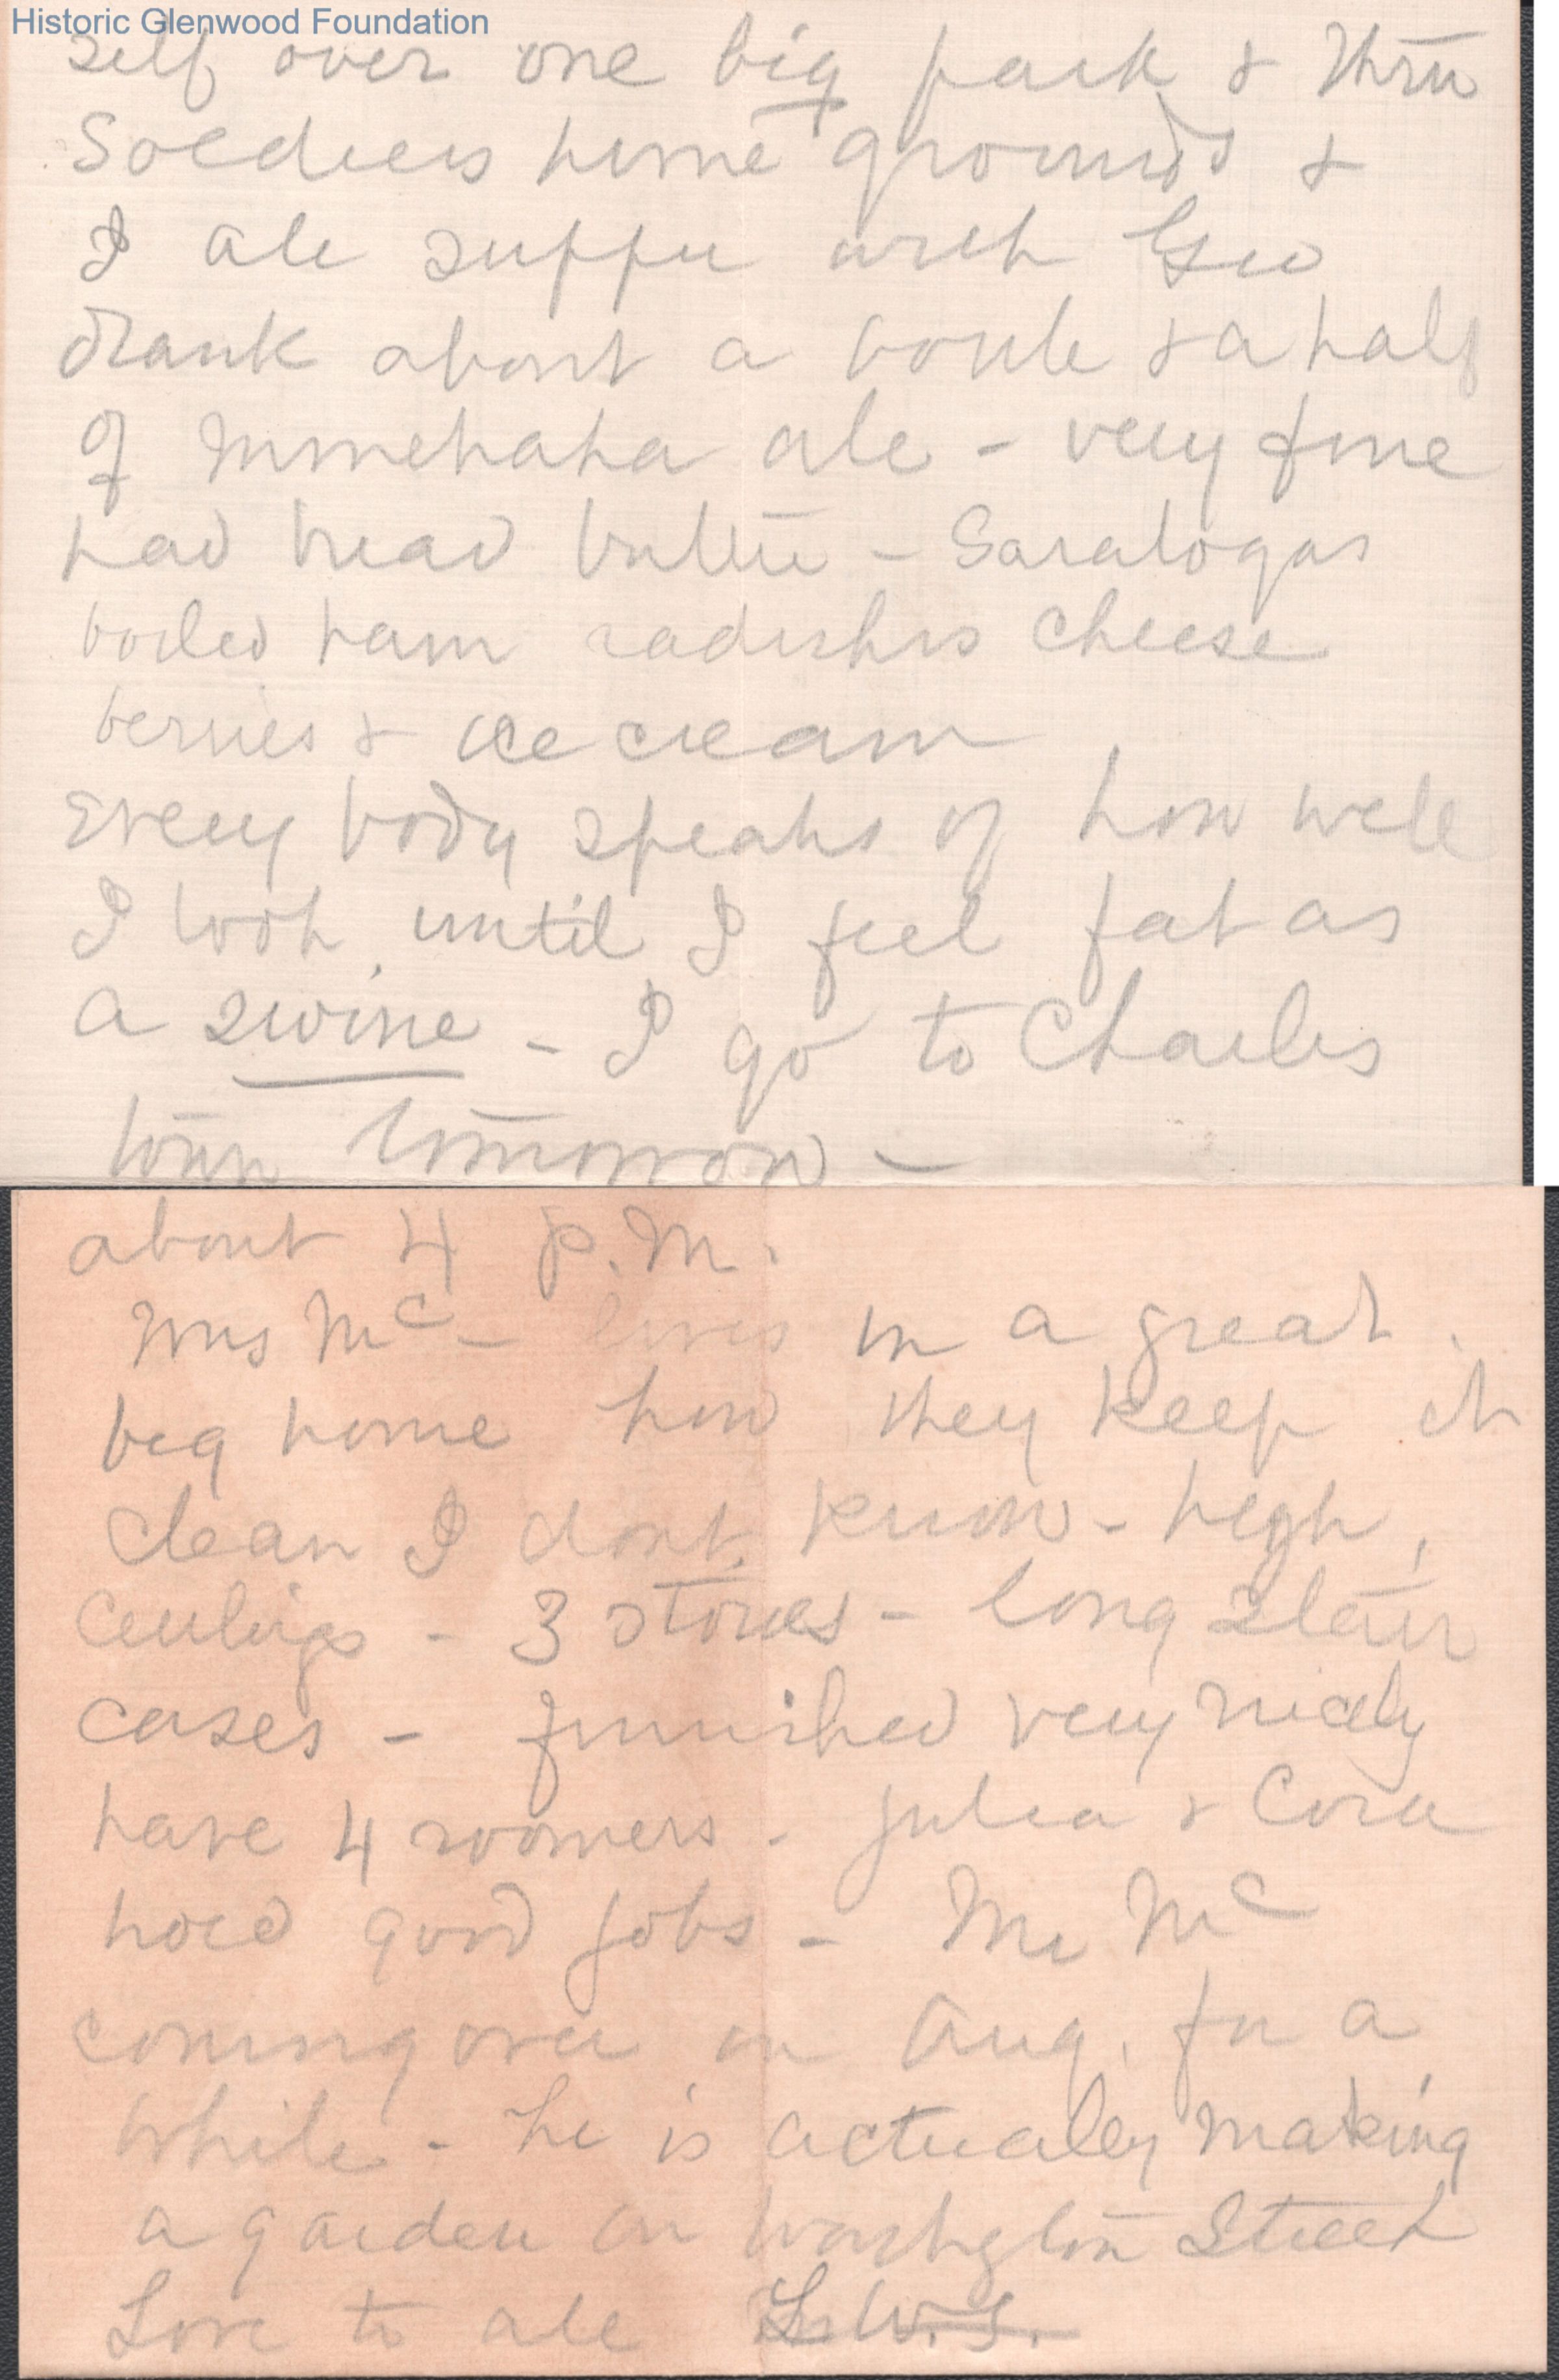 Historic Glenwood Foundation
self over one big park & thru
Soldiers home grounds &
I ate supper with Geo
drank about a bottle & a half
of Minnehaha ale - very fine
had bread butter - Saratogas
boiled ham radishes cheese
berries & ice cream
Every body speaks of how well
I look, until I feel fat as
a swine - I go to Charles
town tomorrow -
about 4 P.M.
Mrs Mc - lives in a great
big home how they keep it
clean I dont know - high
ceilings - 3 stories - long stair
cases - furnished very nicely
have 4 roomers - Julia & Cora
hold good jobs - Mr Mc
coming over in Aug. for a
while - he is actually making
a garden on Washgton Street
Love to all L.W.S.